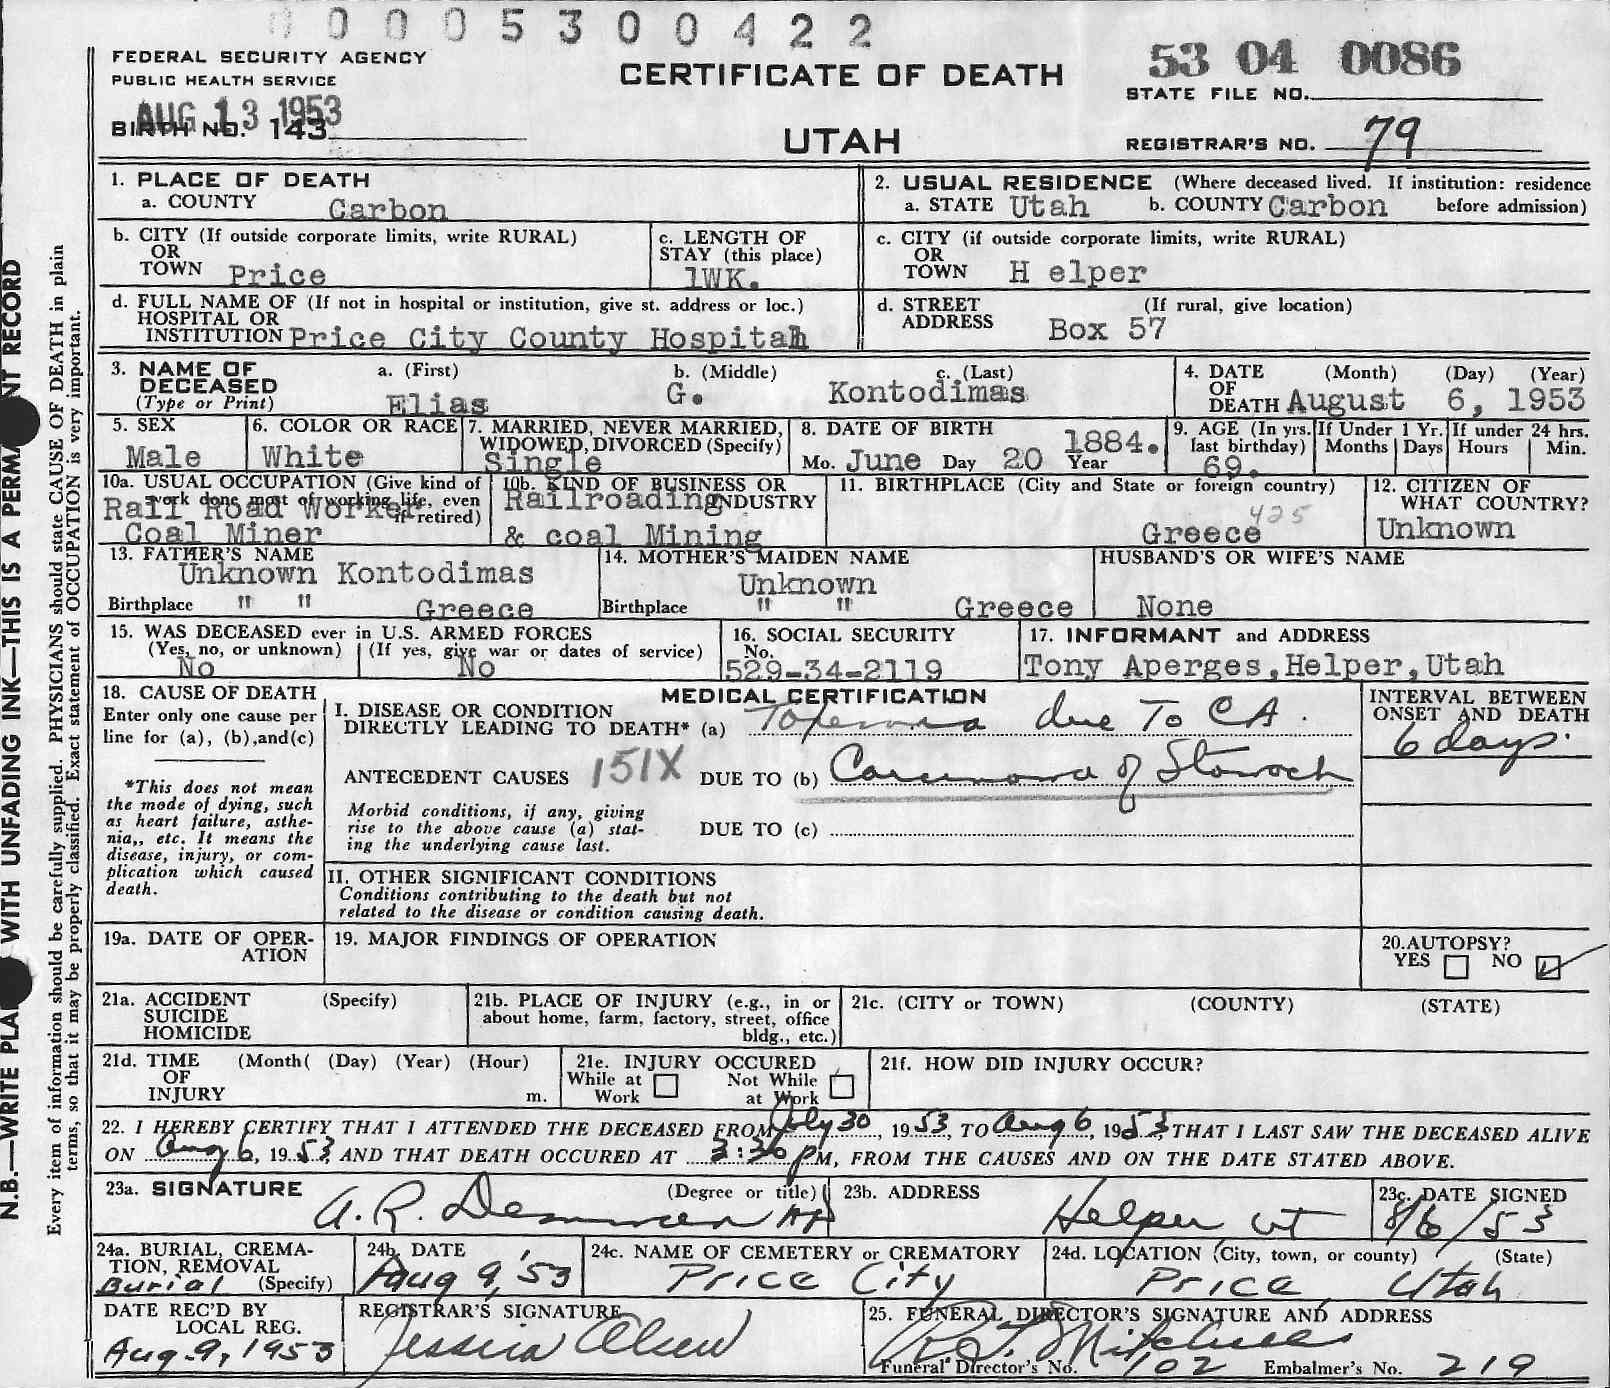 0 0 0 0 5 3 0 0 4 2 2
FEDERAL SECURITY AGENCY
PUBLIC HEALTH SERVICE
AUG 13 1953
BIRTH NO. 143
CERTIFICATE OF DEATH
UTAH
53 04 0086
STATE FILE NO.
REGISTRAR'S NO. 79
N.B.—WRITE PLAI WITH UNFADING INK—THIS IS A PERMA NT RECORD
Every item of information should be carefully supplied. PHYSICIANS should state CAUSE OF DEATH in plain
terms, so that it may be properly classified. Exact statement of OCCUPATION is very important.
1. PLACE OF DEATH
a. COUNTY Carbon
2. USUAL RESIDENCE (Where deceased lived. If institution: residence
a. STATE Utah b. COUNTY Carbon before admission)
b. CITY (If outside corporate limits, write RURAL)
OR
TOWN Price
c. LENGTH OF
STAY (this place)
1WK.
c. CITY (if outside corporate limits, write RURAL)
OR
TOWN H elper
d. FULL NAME OF (If not in hospital or institution, give st. address or loc.)
HOSPITAL OR
INSTITUTION Price City County Hospital
d. STREET (If rural, give location)
ADDRESS Box 57
3. NAME OF a. (First) b. (Middle) c. (Last)
DECEASED
(Type or Print) Elias G. Kontodimas
4. DATE (Month) (Day) (Year)
OF
DEATH August 6, 1953
5. SEX
Male
6. COLOR OR RACE
White
7. MARRIED, NEVER MARRIED,
WIDOWED, DIVORCED (Specify)
Single
8. DATE OF BIRTH
Mo. June Day 20 Year 1884.
9. AGE (In yrs. If Under 1 Yr. If under 24 hrs.
last birthday) Months Days Hours Min.
69.
10a. USUAL OCCUPATION (Give kind of
work done most of working life, even
if retired)
Rail Road Worker
Coal Miner
10b. KIND OF BUSINESS OR
INDUSTRY
Railroading
& coal Mining
11. BIRTHPLACE (City and State or foreign country)
425
Greece
12. CITIZEN OF
WHAT COUNTRY?
Unknown
13. FATHER'S NAME
Unknown Kontodimas
Birthplace " " Greece
14. MOTHER'S MAIDEN NAME
Unknown
Birthplace " " Greece
HUSBAND'S OR WIFE'S NAME
None
15. WAS DECEASED ever in U.S. ARMED FORCES
(Yes, no, or unknown) (If yes, give war or dates of service)
No No
16. SOCIAL SECURITY
No.
529-34-2119
17. INFORMANT and ADDRESS
Tony Aperges, Helper, Utah
18. CAUSE OF DEATH
Enter only one cause per
line for (a), (b), and (c)
*This does not mean
the mode of dying, such
as heart failure, asthe-
nia,, etc. It means the
disease, injury, or com-
plication which caused
death.
MEDICAL CERTIFICATION
I. DISEASE OR CONDITION
DIRECTLY LEADING TO DEATH* (a) due To CA.
ANTECEDENT CAUSES 151X DUE TO (b) Carcinoma of Stomach
Morbid conditions, if any, giving
rise to the above cause (a) stat-
ing the underlying cause last.
DUE TO (c)
INTERVAL BETWEEN
ONSET AND DEATH
6 days.
II. OTHER SIGNIFICANT CONDITIONS
Conditions contributing to the death but not
related to the disease or condition causing death.
19a. DATE OF OPER-
ATION
19. MAJOR FINDINGS OF OPERATION
20. AUTOPSY?
YES NO
21a. ACCIDENT (Specify)
SUICIDE
HOMICIDE
21b. PLACE OF INJURY (e.g., in or
about home, farm, factory, street, office
bldg., etc.)
21c. (CITY or TOWN) (COUNTY) (STATE)
21d. TIME (Month( (Day) (Year) (Hour)
OF
INJURY m.
21e. INJURY OCCURED
While at Not While
Work at Work
21f. HOW DID INJURY OCCUR?
22. I HEREBY CERTIFY THAT I ATTENDED THE DECEASED FROM July 30, 1953, TO Aug 6, 1953, THAT I LAST SAW THE DECEASED ALIVE
ON Aug 6, 1953, AND THAT DEATH OCCURED AT 3:30 PM, FROM THE CAUSES AND ON THE DATE STATED ABOVE.
23a. SIGNATURE (Degree or title)
A. R. Demman
23b. ADDRESS
Helper, Ut
23c. DATE SIGNED
8/6/53
24a. BURIAL, CREMA-
TION, REMOVAL
Burial (Specify)
24b. DATE
Aug 9, '53
24c. NAME OF CEMETERY or CREMATORY
Price City
24d. LOCATION (City, town, or county) (State)
Price, Utah
DATE REC'D BY
LOCAL REG.
Aug. 9, 1953
REGISTRAR'S SIGNATURE
Jessica Olsen
25. FUNERAL DIRECTOR'S SIGNATURE AND ADDRESS
Mitchell
Funeral Director's No. 102 Embalmer's No. 219